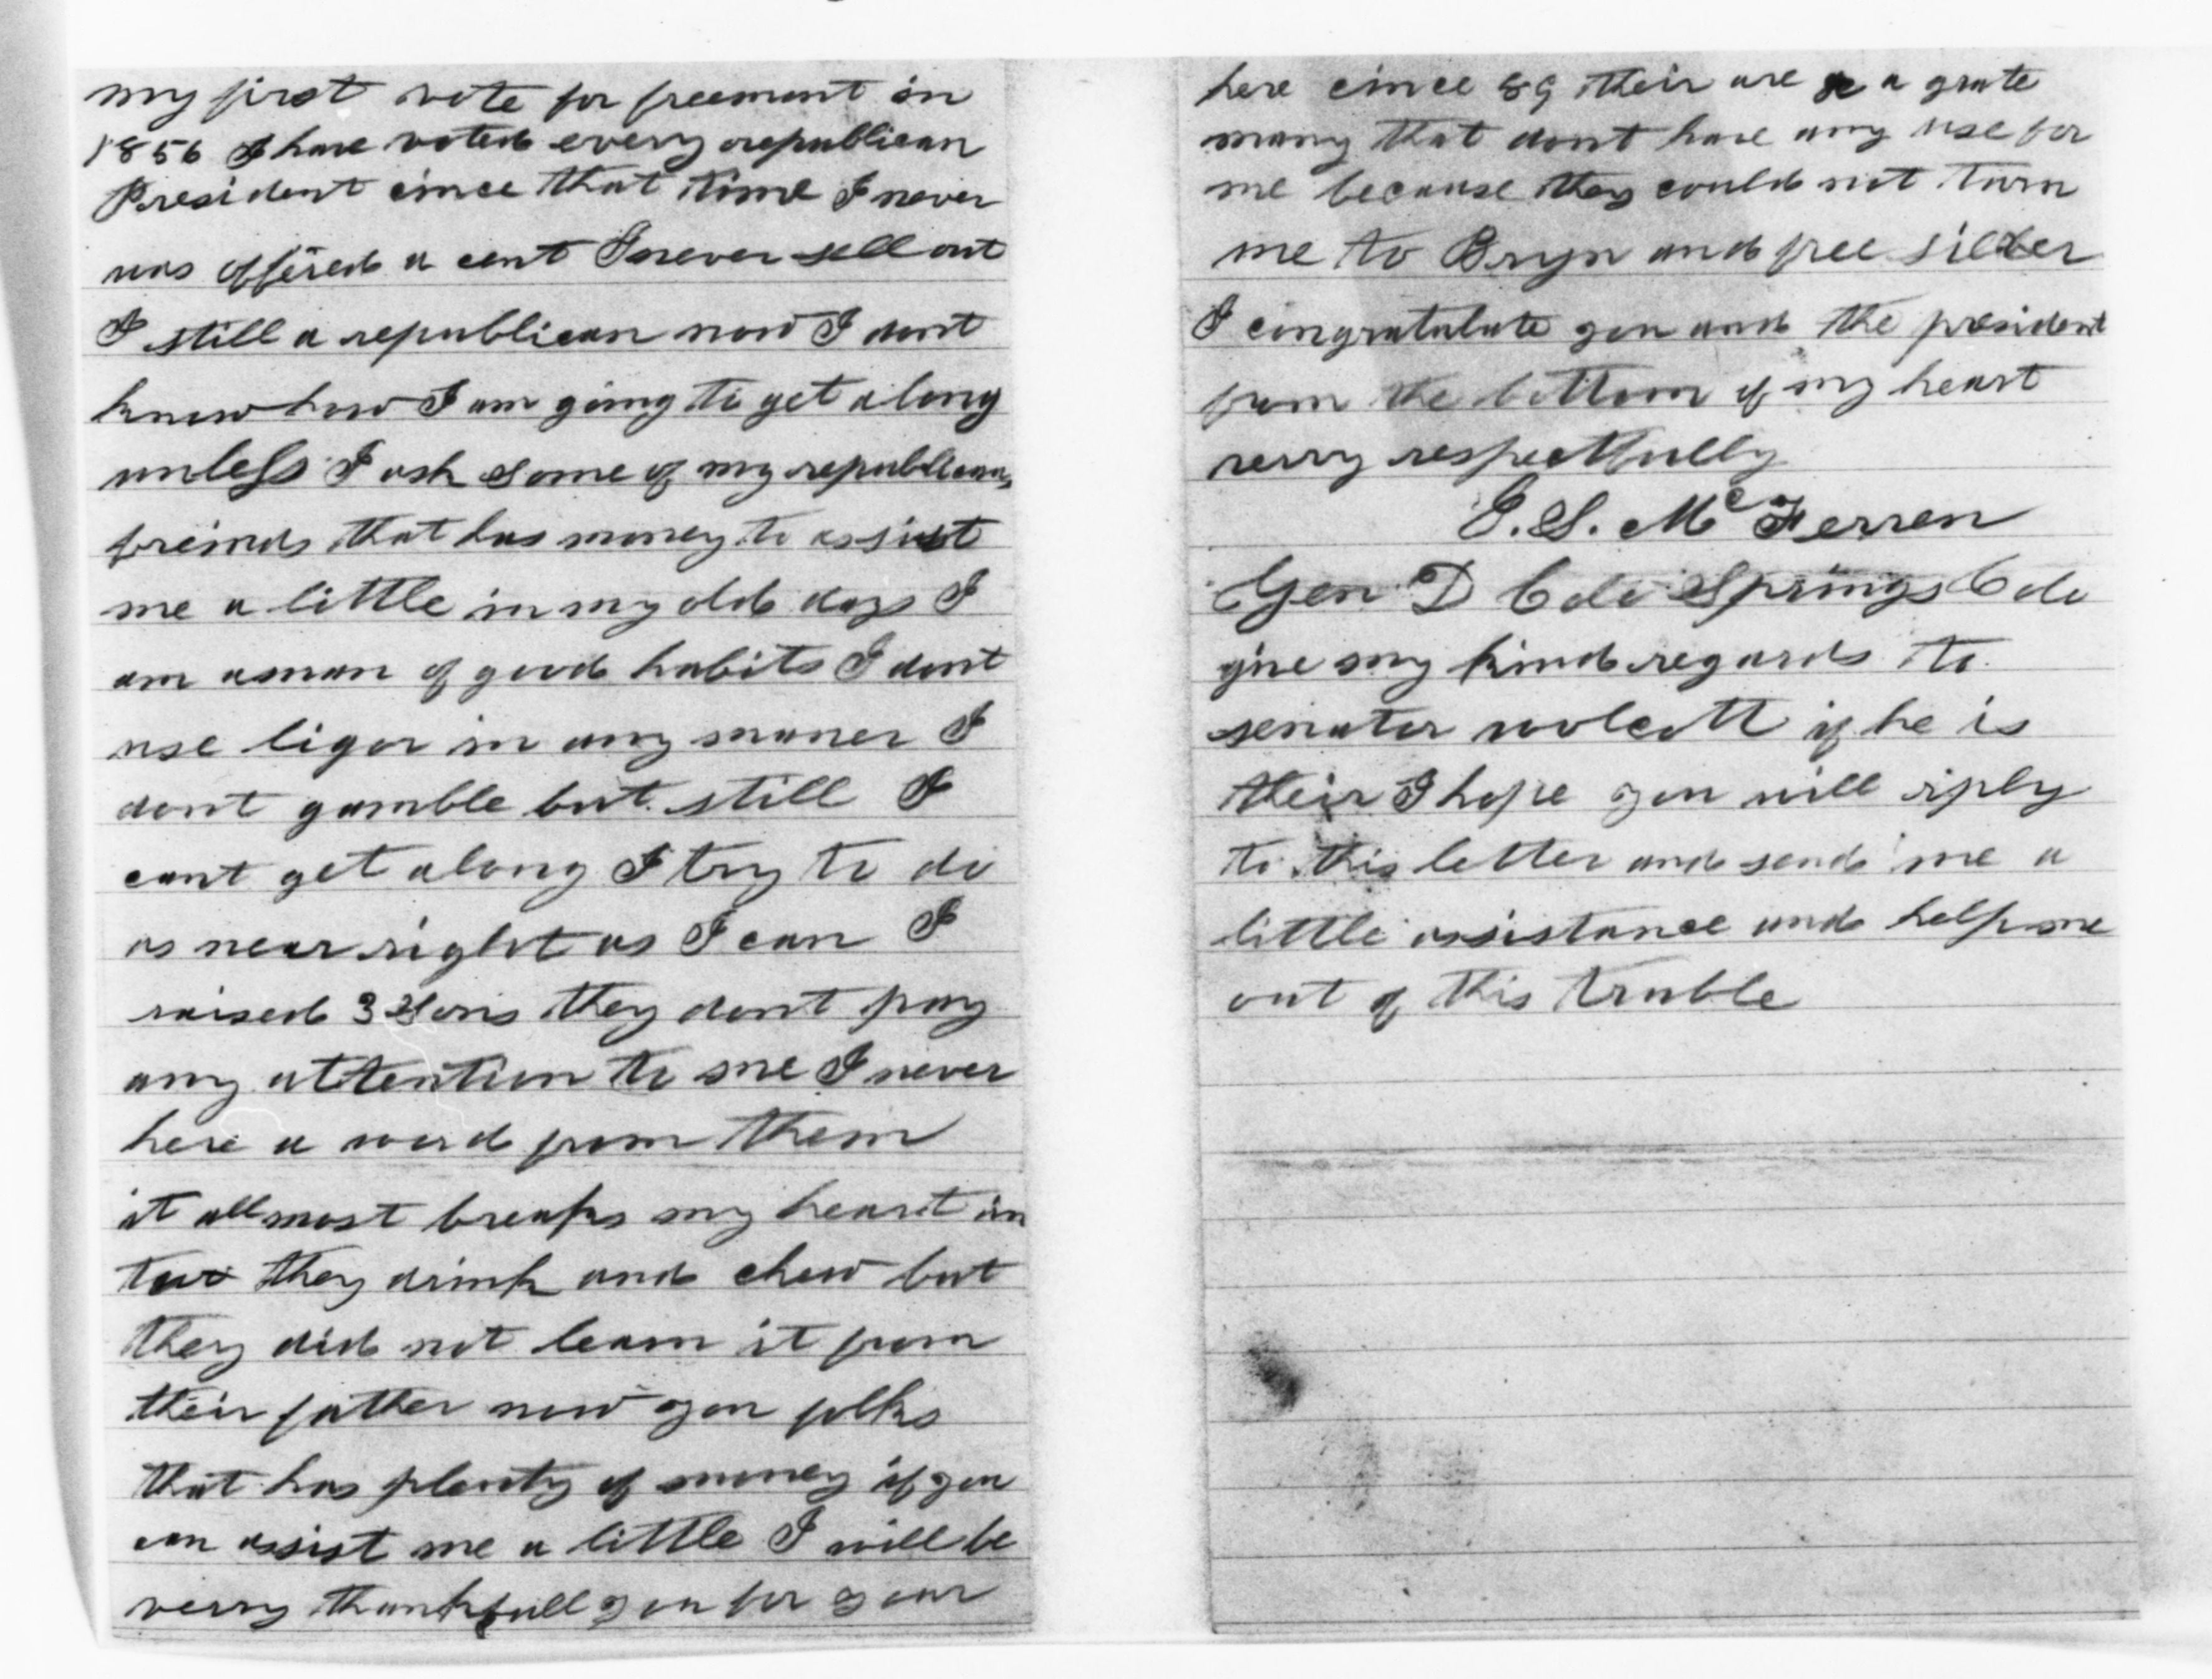 my first vote for freemont in
1856 I have voted every republican
President cince that time I never
was offered a cent I never sell out
I still a republican now I dont
know how I am going to get along
unless I ask some of my republicans
freinds that has money to assist
me a little in my old days I
am a man of good habits I dont
use liqor in any maner I
dont gamble but still I
cant get along I try to do
as near right as I can I
raised 3 Sons they dont pay
any attention to me I never
here a word from them
it allmost breaks my heart in
two they drink and chew but
they did not learn it from
their father now you folks
that has plenty of money if you
can assist me a little I will be
verry thankfull you for your
here cince 89 their are a grate
many that dont have any use for
me because they could not turn
me to Bryn and free silver
I congratulate you and the president
from the bottom of my heart
verry respectfully
E. S. McFerren
Gen D Colo Springs Colo
give my kind regards to
senator wolcott if he is
their I hope you will riply
to this letter and send me a
little assistance and help me
out of this truble